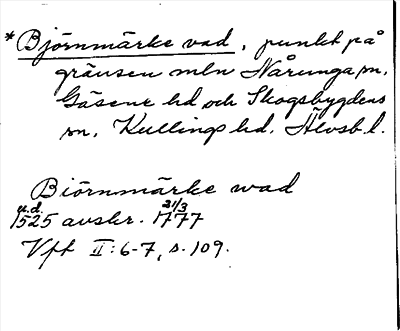 *Björnmärke vad, punkt på
gränsen mln Nårunga sn,
Gäsene hd och Skogsbygdens
sn, Kullings hd. Älvsb. l.
Biörnmärke wad
u.d.
1525 avskr. 21/3 1777
Vff II:6-7, s. 109.